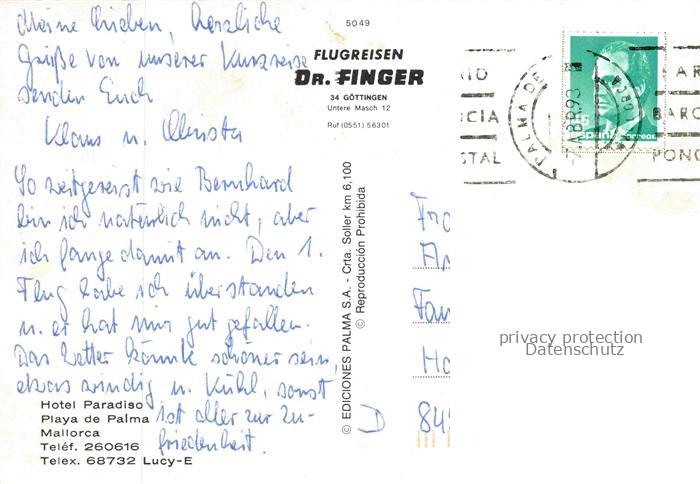 Meine Lieben, herzliche
Grüße von unserer Kurzreise
senden Euch
Klaus u. Christa
So weitgereist wie Bernhard
bin ich natürlich nicht, aber
ich fange damit an. Den 1.
Flug habe ich überstanden
u. er hat mir gut gefallen.
Das Wetter könnte schöner sein,
etwas windig u. kühl, sonst
ist alles zur Zu-
friedenheit.
Hotel Paradiso
Playa de Palma
Mallorca
Teléf. 260616
Telex. 68732 Lucy-E
5049
FLUGREISEN
DR. FINGER
34 GÖTTINGEN
Untere Masch 12
Ruf (0551) 56301
© EDICIONES PALMA S.A. - Crta. Soller km 6,100
© Reproducción Prohibida
PALMA DE
ABR.93
correos
RID
NCIA
STAL
BAR
BARC
PONG
D
84
privacy protection
Datenschutz